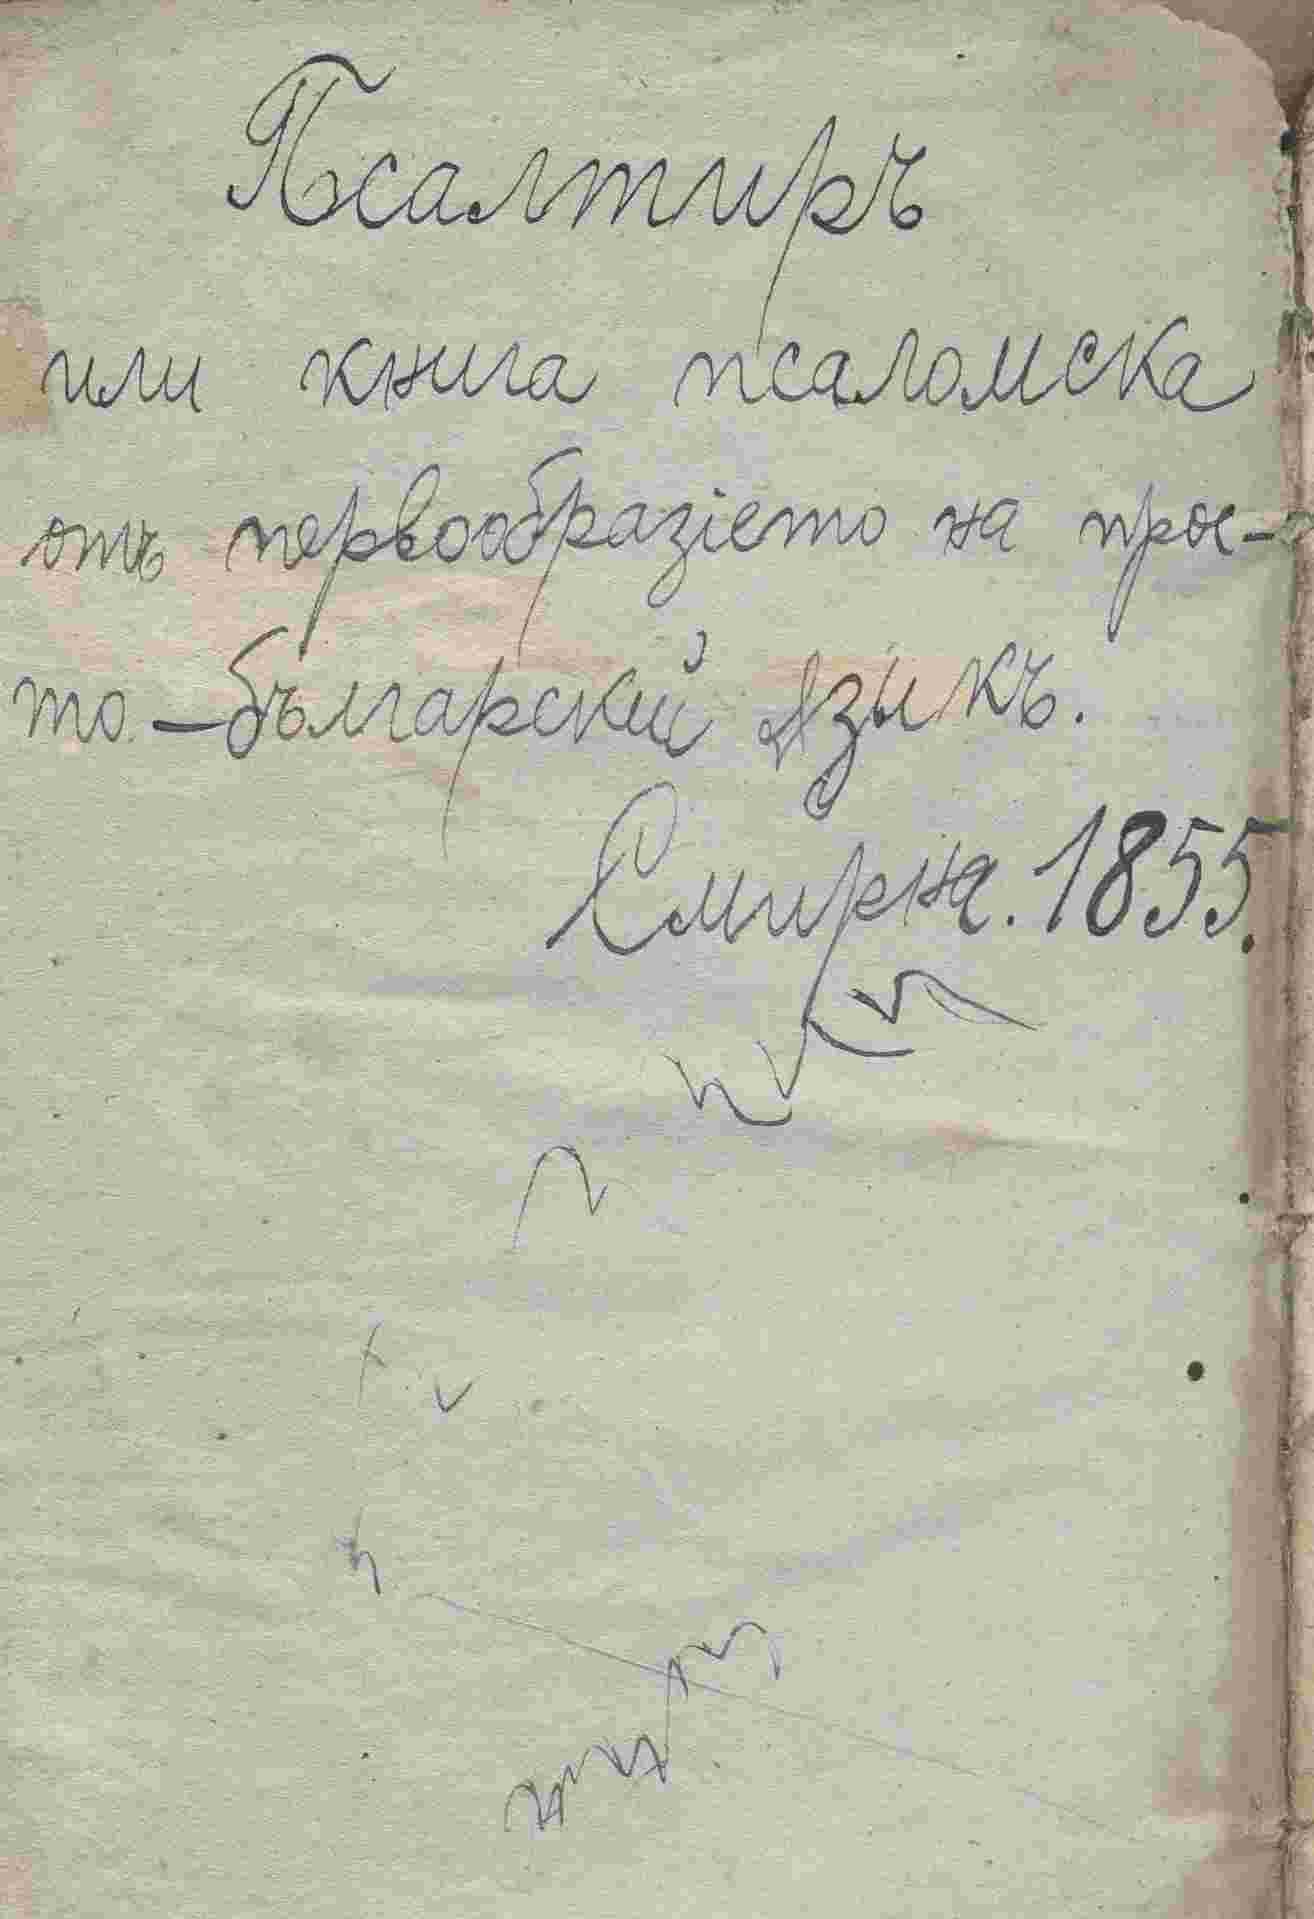 Псалтиръ
или книга псаломска
отъ первообразіето на прос-
то-български ѧзыкъ.
Смирна. 1855.